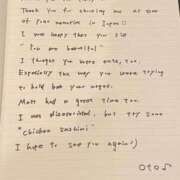 Thank you for choosing me as one
of your memories in Japan!!
I am happy that you said
"You are beautiful"
I thought you were cute, too.
Especially the way you were trying
to hold back your
Matt had a great time too.
I was disappointed, but try some
"Chicken Sashimi"
I hope to see you again:)